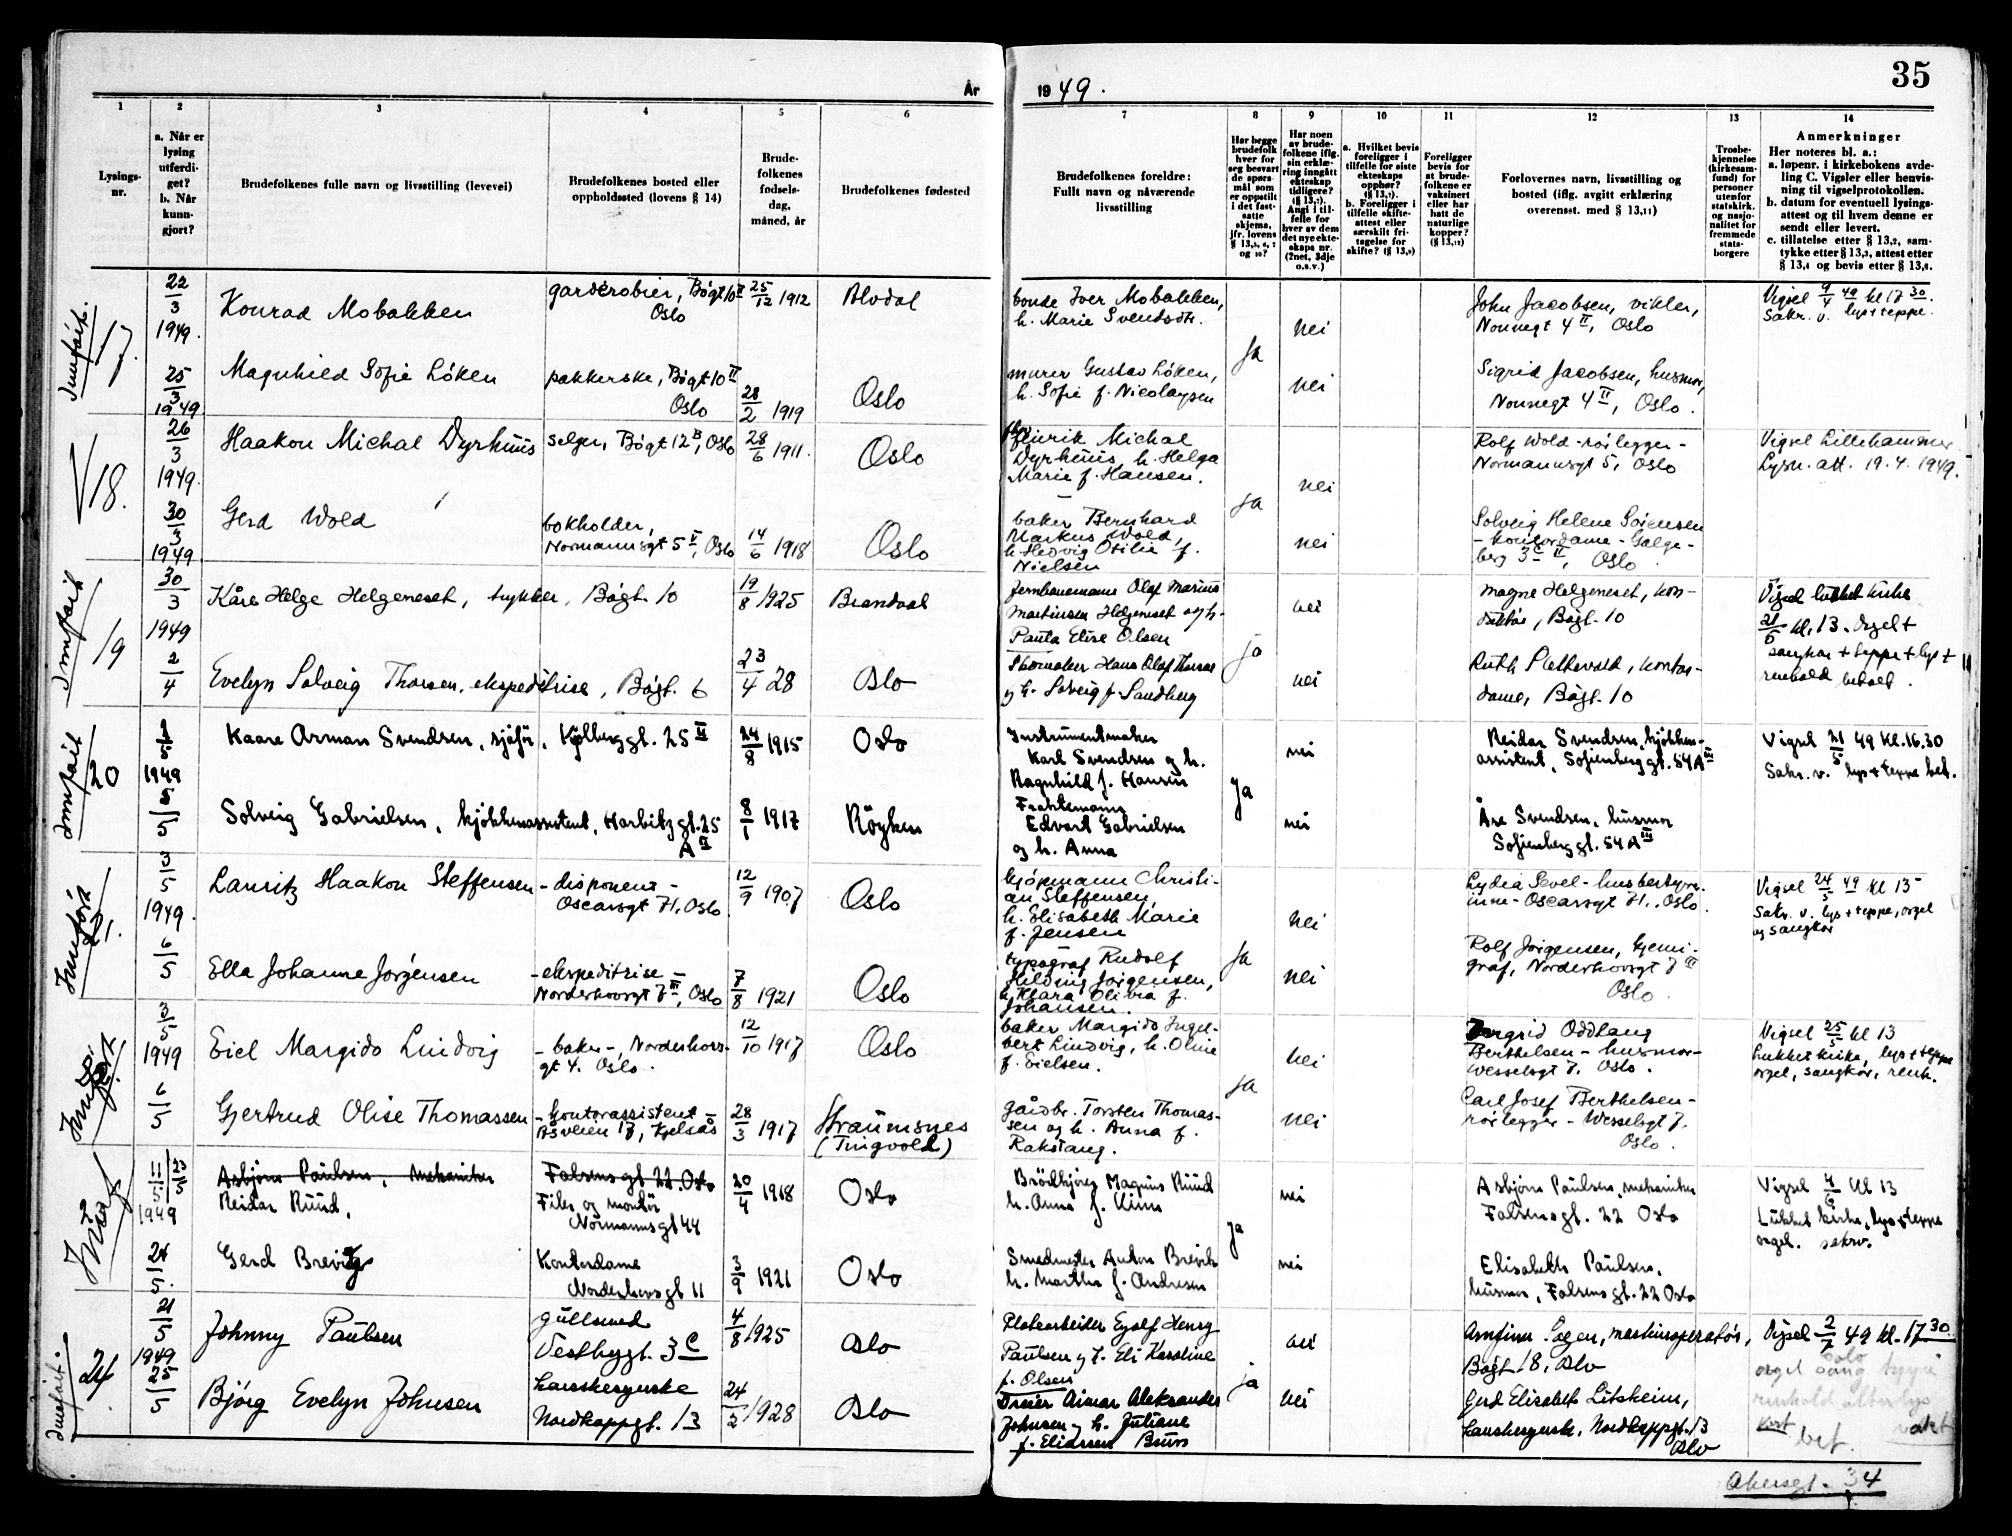 35
År 1949.
1 2 3 4 5 6 7 8 9 10 11 12 13 14
Lysings-
nr.
a. Når er
lysing
utferdi-
get?
b. Når
kunn-
gjort?
Brudefolkenes fulle navn og livsstilling (levevei)
Brudefolkenes bosted eller
oppholdssted (lovens § 14)
Brude-
folkenes
fødsels-
dag,
måned, år
Brudefolkenes fødested
Brudefolkenes foreldre:
Fullt navn og nåværende
livsstilling
Har begge
brudefolk
hver for
seg besvart
de spørs-
mål som
er oppstilt
i det fast-
satte
skjema,
jfr. lovens
§ 13,
og 10?
Har noen
av brude-
folkene iflg.
sin erklæ-
ring inngått
ekteskap
tidligere?
(§ 13,7).
Angi i til-
felle for
hver av dem
det nye ekte-
skaps nr.
(2net, 3dje
o.s.v.)
a. Hvilket bevis
foreligger i
tilfelle for siste
ekteskaps
opphør?
(§ 13,7).
b. Foreligger i
tilfelle skifte-
attest eller
særskilt fri-
tagelse for
skifte? (§ 13,9)
Foreligger
bevis for
at brude-
folkene er
vaksinert
eller har
hatt de
naturlige
kopper?
(§ 13,12)
Forlovernes navn, livsstilling og
bosted (iflg. avgitt erklæring
overensst. med § 13,11)
Trosbe-
kjennelse
(kirkesam-
fund) for
personer
utenfor
statskirk.
og nasjo-
nalitet for
fremmede
stats-
borgere
Anmerkninger
Her noteres bl. a.:
a. løpenr. i kirkebokens avde-
ling C. Vigsler eller henvis-
ning til vigselprotokollen.
b. datum for eventuell lysings-
attest og til hvem denne er
sendt eller levert.
c. tillatelse etter § 13,2, sam-
tykke etter § 13,3, attest etter
§ 13,4 og bevis etter § 13,8.
22/3 1949. Konrad Mobakken garderobier, Bøgt 10 II Oslo 25/12 1912 Alvdal
bonde Iver Mobakken,
h. Marie Svendsdtr.
Ja nei
John Jacobsen, vikler,
Nonnegt 4 II, Oslo
Vigsel 9/4 49 kl 17 30.
Sakr. v. lys + teppe.
25/3 1949 Magnhild Sofie Løken pakkerske, Bøgt 10 II Oslo 28/2 1919 Oslo
murer Gustav Løken,
h. Sofie f. Nicolaysen
nei
Sigrid Jacobsen, husmor,
Nonnegt 4 II, Oslo.
18. 26/3 1949. Haakon Michal Dyrhuus selger, Bøgt 12 B, Oslo 28/6 1911. Oslo
Henrik Michal
Dyrhuus, h. Helga
Marie f. Hansen.
ja nei
Rolf Wold - rørlegger -
Normannsgt 5, Oslo
Vigsel Lillehammer
Lysn. att. 19.4.1949.
30/3 1949 Gerd Wold bokholder,
Normannsgt 5 II, Oslo 14/6 1918 Oslo
baker Bernhard
Markus Wold,
h. Hedvig Otilie f.
Nielsen
nei
Solveig Helene Sørensen
- kontordame - Galge-
berg 3 c II, Oslo
19 30/3 1949 Kåre Helge Helgeneset, trykker, Bøgt. 10 19/8 1925 Brandval
Jernbanemann Olaf Marius
Martinsen Helgeneset og h.
Paula Elise Olsen
ja nei
Magne Helgeneset, kon-
duktør, Bøgt. 10
Vigsel lukket kirke
21/5 kl. 13. Orgel +
sangkor + teppe + lys +
renhold betalt.
2/4 Evelyn Solveig Thorsen, ekspeditrise, Bøgt. 6 23/4 28 Oslo
Skomaker Hans Olaf Thorsen
og h. Solveig f. Sandberg
nei
Ruth Slettevold, kontor-
dame, Bøgt. 10
20 1949 Kaare Arman Svendsen, sjåfør, Kjølberggt. 25 II 24/8 1915 Oslo
Instrumentmaker
Karl Svendsen og h.
Ragnhild f. Hansen
Ja nei
Reidar Svendsen, kjøkken-
assistent, Sofienberggt. 54 A III
Vigsel 21/5 49 kl. 16.30
Sakr. v. lys + teppe bet.
5/5 Solveig Gabrielsen, kjøkkenassistent, Harbitzgt. 25
A II 8/1 1917 Røyken
Fraktemann
Edvart Gabrielsen
og h. Anna
nei
Åse Svendsen, husmor
Sofienberggt. 54 A III
21. 3/5 1949. Lauritz Haakon Steffensen - disponent -
Oscarsgt 71, Oslo 12/9 1907 Oslo
kjøpmann Christi-
an Steffensen,
h. Elisabeth Marie
f. Jensen
Ja nei
Lydia Sevel - husbestyre-
inne - Oscarsgt 71. Oslo.
Vigsel 24/5 49 kl 15
Sakr. v. lys + teppe, orgel
og sangkor
6/5 Ella Johanne Jørgensen - ekspeditrise -
Norderhovsgt 7 III, Oslo 7/8 1921 Oslo
typograf Rudolf
Hilding Jørgensen,
h. Klara Olivia f.
Johansen.
nei
Rolf Jørgensen, kjemi-
graf, Norderhovsgt 7 III
Oslo.
3/5 1949 Eiel Margido Lindvig - baker -, Norderhovs-
gt 4. Oslo. 12/10 1917 Oslo
baker Margido Ingel-
bert Lindvig, h. Oline
f. Eielsen.
Ja nei
Ingrid Oddlaug
Berthelsen - husmor -
Wesselsgt 7. Oslo.
Vigsel 25/5 kl 13
Lukket kirke, lys + teppe
orgel, sangkor, renh.
6/5 Gjertrud Olise Thomassen - kontorassistent -
Åsveien 17, Kjelsås 28/3 1917 Straumsnes
(Tingvoll)
gårdbr. Torsten Thomas-
sen og h. Anna f.
Rakstang.
nei
Carl Josef Berthelsen -
rørlegger - Wesselsgt 7.
Oslo.
11/5 23/5 1949 Asbjørn Paulsen, mekaniker Falsensgt 22. Oslo
Reidar Ruud, Filer og montør
Normannsgt 44 20/4 1918 Oslo
Brødkjører Magnus Ruud
h. Anna f. Kinn
ja nei
Asbjørn Paulsen, mekaniker
Falsensgt. 22 Oslo
Vigsel 4/6 kl 13
Lukket kirke, lys + teppe
orgel. sakr.
24/5. Gerd Brevig Kontordame
Norderhovsgt 11 3/9 1921 Oslo
Smedmester Anton Brevik
h. Martha f. Andresen
nei
Elisabeth Paulsen,
husmor, Falsensgt. 22 Oslo
24. 21/5 1949 Johnny Paulsen gullsmed
Vestbygt. 3 C 4/8 1925 Oslo
Platearbeider Eyolf Henry
Paulsen og h. Eli Karoline
f. Olsen
ja nei
Arnfinn Eggen, maskinoperatør,
Bøgt 18, Oslo
Vigsel 2/7 49 kl. 17 30
25/5 Bjørg Evelyn Johnsen Lauskesyerske
Nordkappgt. 13 24/2 1928 Oslo
Dreier Aimar Aleksander
Johnsen og h. Juliane
f. Eliassen Buvs
nei
Gerd Elisabeth Litsheim,
Lauskesyerske, Nordkappgt. 13
Oslo
bet.
Akersgt. 34